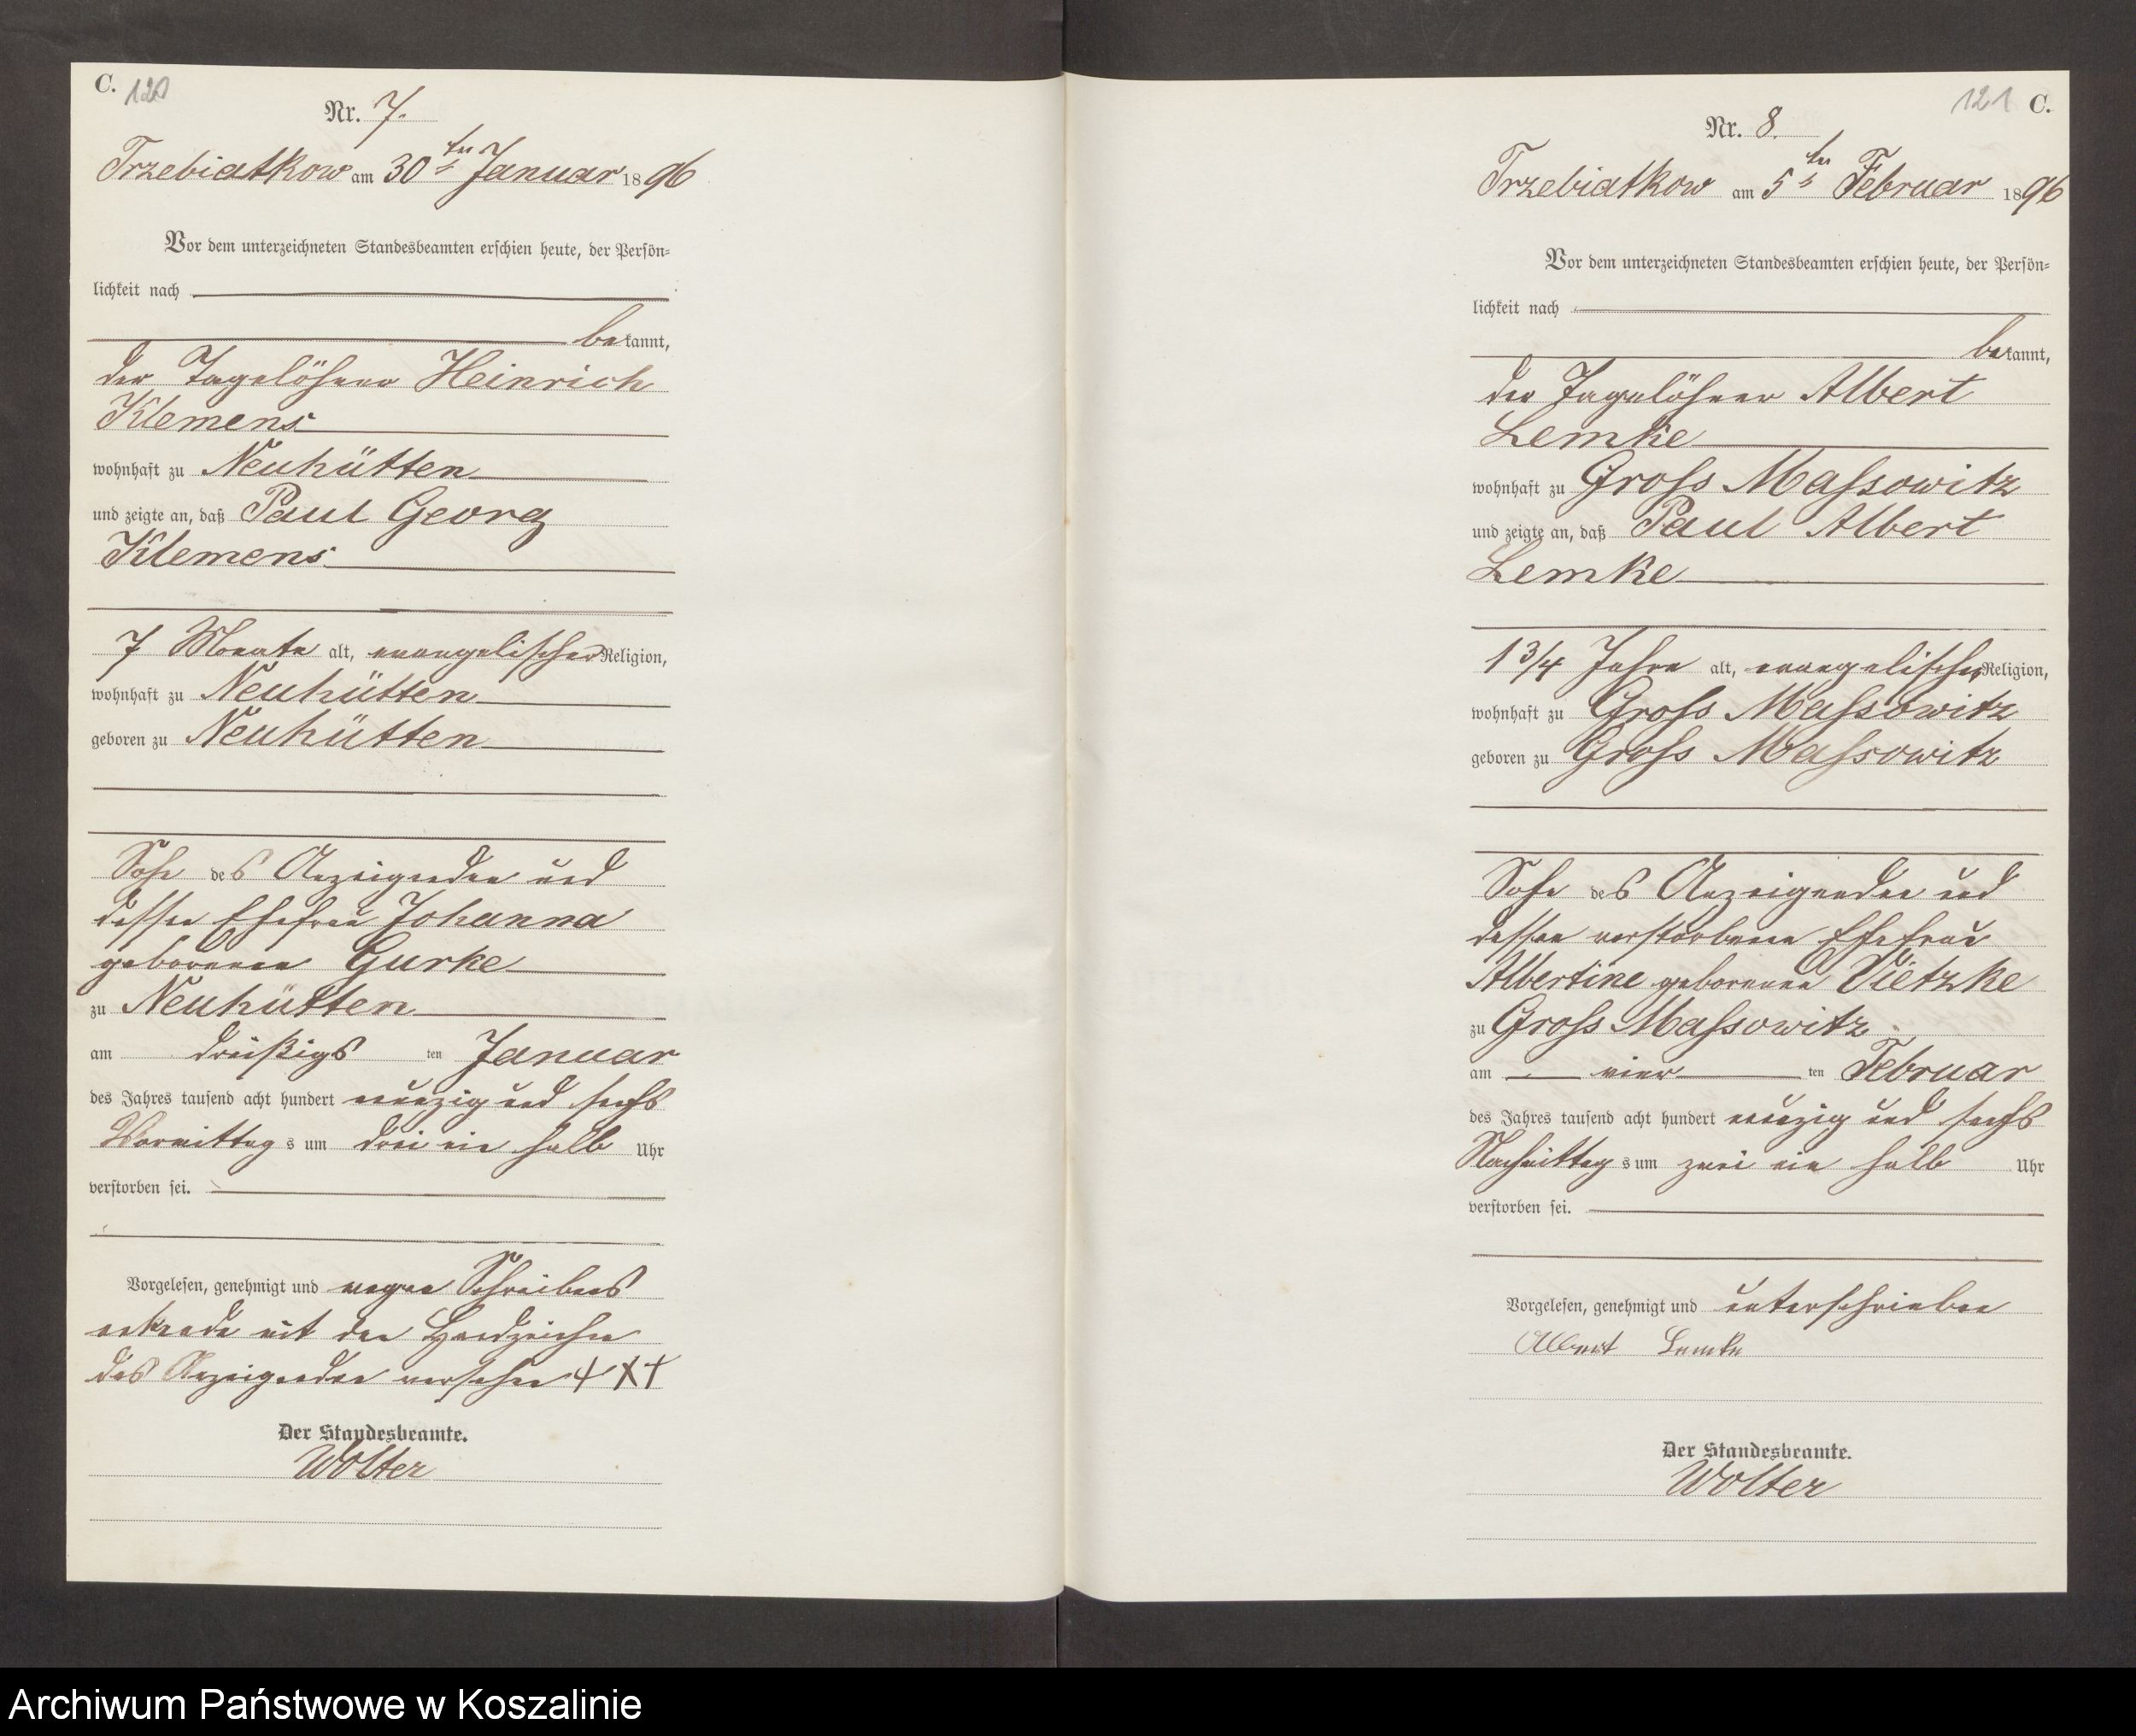 C. 120
Nr. 7.
Trzebiatkow am 30ten Januar 1896
Vor dem unterzeichneten Standesbeamten erschien heute, der Persön-
lichkeit nach
bekannt,
der Tagelöhner Heinrich
Klemens
wohnhaft zu Neuhütten
und zeigte an, daß Paul Georg
Klemens
7 Monate alt, evangelischer Religion,
wohnhaft zu Neuhütten
geboren zu Neuhütten
Sohn des Anzeigenden und
dessen Ehefrau Johanna
geborenen Gurke
zu Neuhütten
am dreißigsten Januar
des Jahres tausend acht hundert neunzig und sechs
Vormittags um drei ein halb Uhr
verstorben sei.
Vorgelesen, genehmigt und wegen Schreibens
unkunde mit den Handzeichen
des Anzeigenden versehen +++
Der Standesbeamte.
Wolter
121 C.
Nr. 8.
Trzebiatkow am 5ten Februar 1896
Vor dem unterzeichneten Standesbeamten erschien heute, der Persön-
lichkeit nach
bekannt,
der Tagelöhner Albert
Lemke
wohnhaft zu Gross Massowitz
und zeigte an, daß Paul Albert
Lemke
1 3/4 Jahre alt, evangelischer Religion,
wohnhaft zu Gross Massowitz
geboren zu Gross Massowitz
Sohn des Anzeigenden und
dessen verstorbenen Ehefrau
Albertine geborenen Vietzke
zu Gross Massowitz
am vierten Februar
des Jahres tausend acht hundert neunzig und sechs
Nachmittags um zwei ein halb Uhr
verstorben sei.
Vorgelesen, genehmigt und unterschrieben
Albert Lemke
Der Standesbeamte.
Wolter
Archiwum Państwowe w Koszalinie